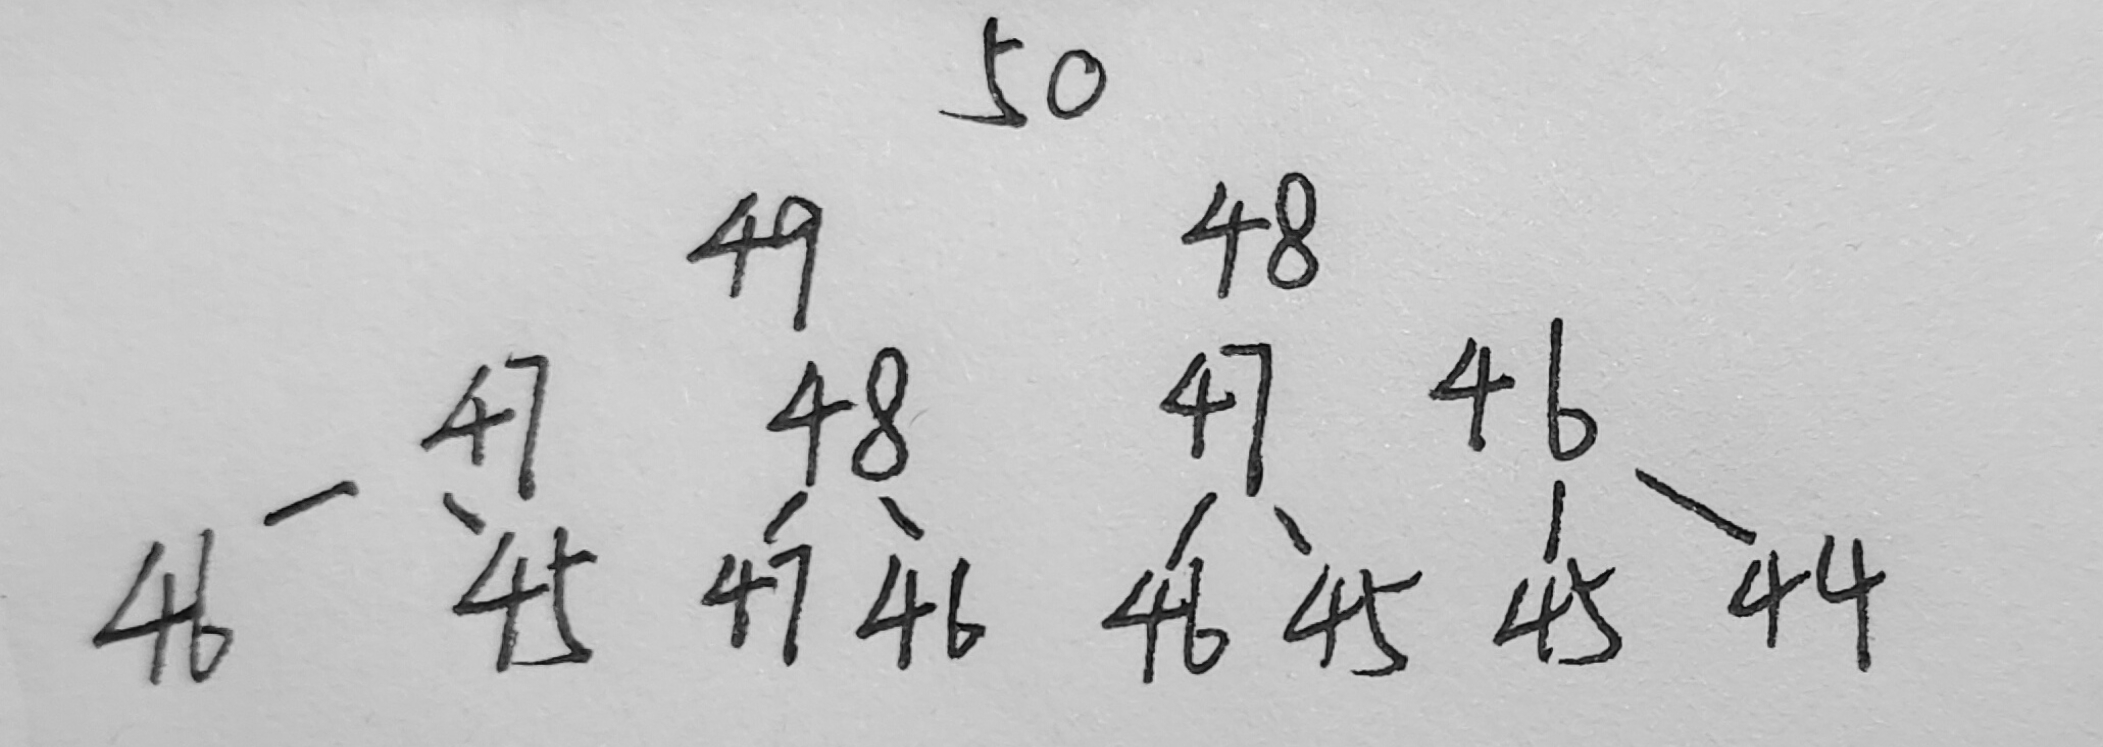 50
49 48
47 48 47 46
46 45 47 46 46 45 45 44